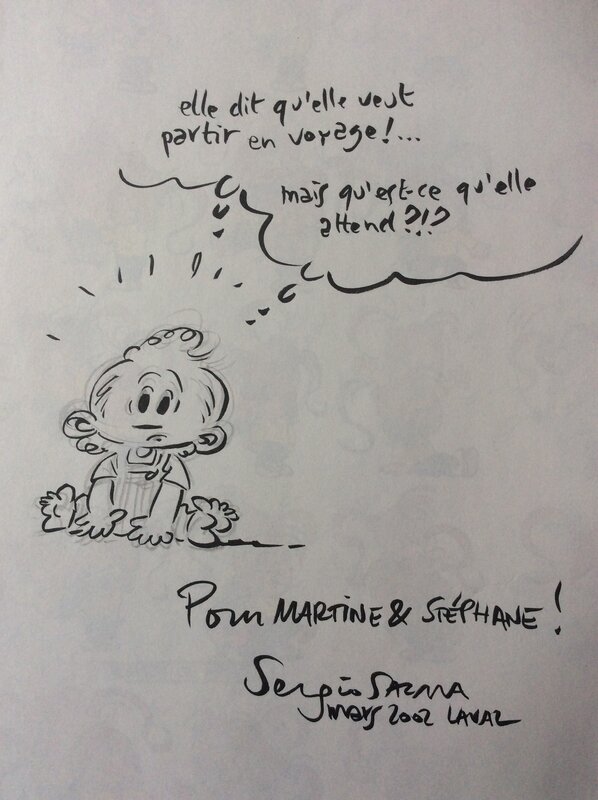 elle dit qu'elle veut
partir en voyage!...
mais qu'est-ce qu'elle
attend?!?
Pour MARTINE & STÉPHANE!
Sergio SALMA
mars 2002 LAVAL